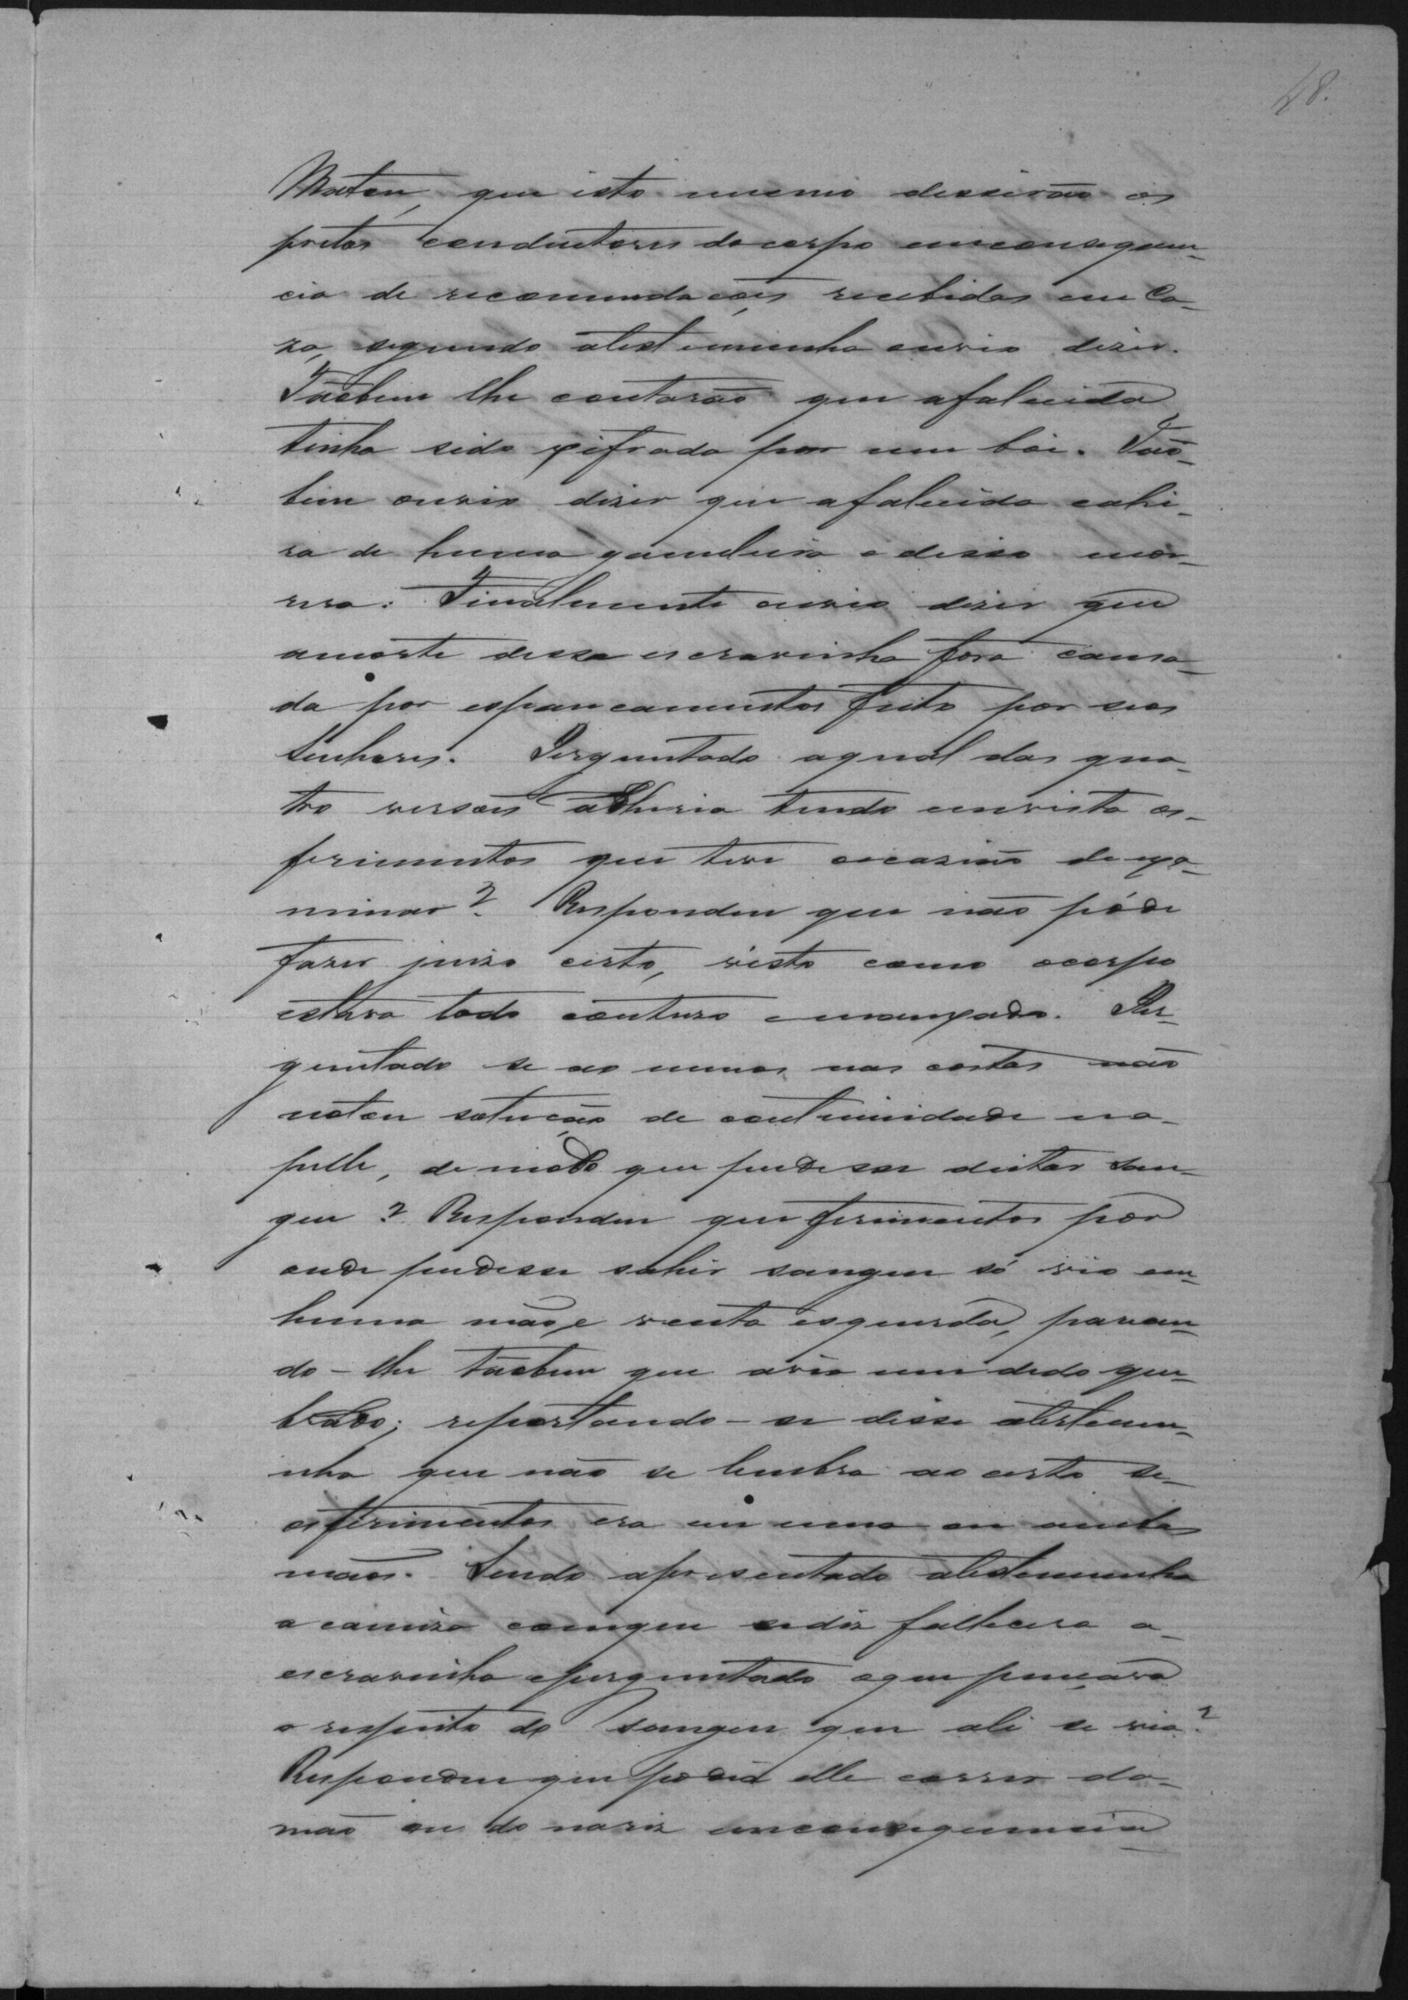 48.
Matou, que isto mesmo disserão os
pretos conductores do corpo em consequen-
cia de recommendações recebidas em Ca-
za, segundo atestimunha ouvio dizer.
Tãobem lhe contarão que afalecida
tinha sido xifrada por um boi. Tão-
bem ouvio dizer que afalecida cahi-
ra de huma gamelleira e disso mor-
rera. Finalmente ouvio dizer que
amorte dessa escravinha fora causa-
da por espancamentos feito por seos
Senhores. Perguntado aqual das qua-
tro versoes adheria tendo em vista os-
ferimentos que teve occasião de exa-
minar? Respondeu que não póde
fazer juizo certo, visto como ocorpo
estava todo contuso e maxucado. Per-
guntado se ao menos nas costas não
notou solução de continuidade na-
pelle, de modo que pudesse deitar San-
gue? Respondeu que ferimentos por
onde pudesse sahir sangue só vio em-
huma mão, e venta esquerda, parecen-
do-lhe tãobem que avio um dedo que-
brado; reportando-se disse atestemu-
nha que não se lembra ao certo se-
osferimentos era em uma ou ambas
mãos. Sendo apresentado atestemunha
a camiza com que se diz fallecera a-
escravinha eperguntado oque pensava
a respeito do Sangue que ali se via?
Respondeu que podia elle correr da-
mão ou do nariz em consequencia